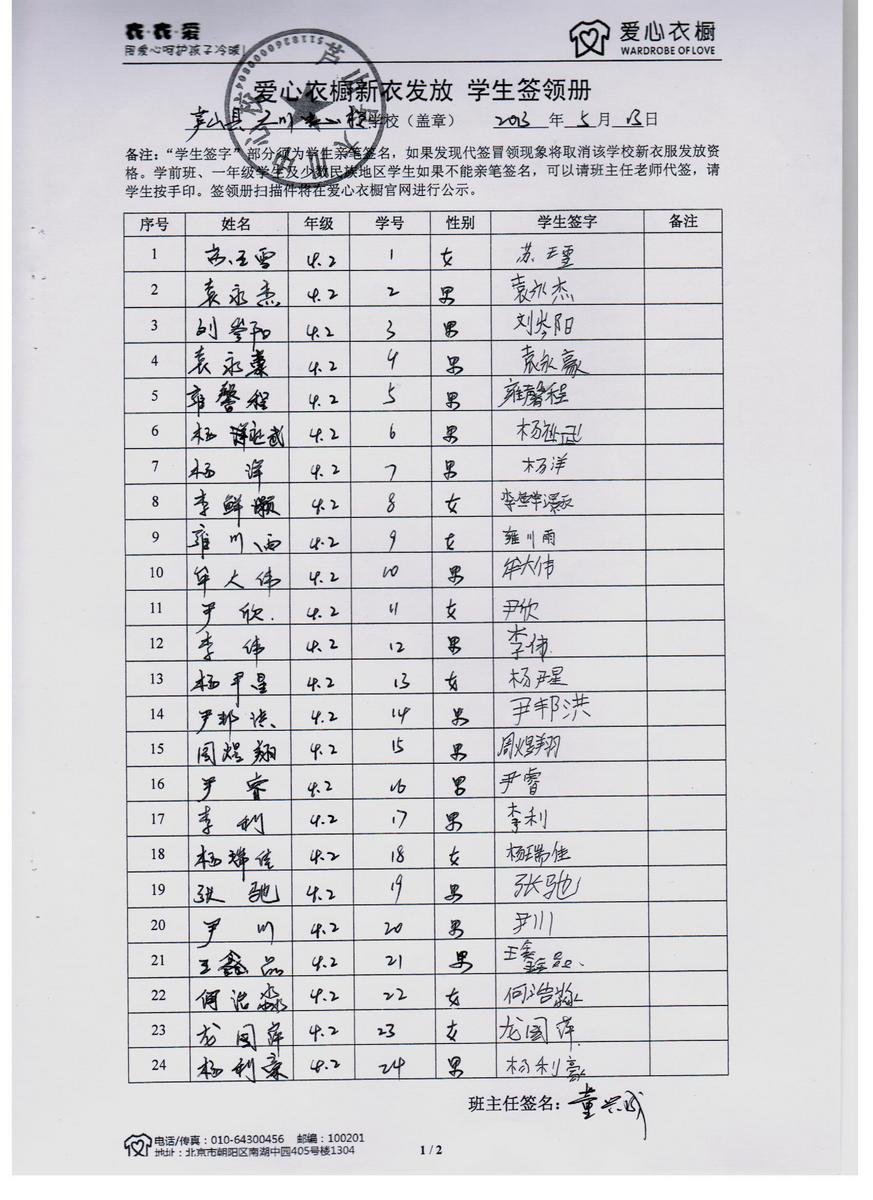 衣·衣·爱
用爱心呵护孩子冷暖!
爱心衣橱
WARDROBE OF LOVE
爱心衣橱新衣发放 学生签领册
芦山县 学校（盖章） 2013 年 5 月 13 日
备注：“学生签字”部分须为学生亲笔签名，如果发现代签冒领现象将取消该学校新衣服发放资
格。学前班、一年级学生及少数民族地区学生如果不能亲笔签名，可以请班主任老师代签，请
学生按手印。签领册扫描件将在爱心衣橱官网进行公示。
序号 姓名 年级 学号 性别 学生签字 备注
1 4.2 1 女 苏
2 袁永杰 4.2 2 男 袁永杰
3 刘岑阳 4.2 3 男 刘岑阳
4 袁永豪 4.2 4 男 袁永豪
5 雍馨程 4.2 5 男 雍馨程
6 杨 武 4.2 6 男 杨 武
7 杨 洋 4.2 7 男 杨洋
8 李鲜灏 4.2 8 女 李鲜灏
9 雍川雨 4.2 9 女 雍川雨
10 牟大伟 4.2 10 男 牟大伟
11 尹欣 4.2 11 女 尹欣
12 李伟 4.2 12 男 李伟
13 杨尹星 4.2 13 女 杨尹星
14 尹邦洪 4.2 14 男 尹邦洪
15 周煜翔 4.2 15 男 周煜翔
16 尹睿 4.2 16 男 尹睿
17 李利 4.2 17 男 李利
18 杨瑞佳 4.2 18 女 杨瑞佳
19 张驰 4.2 19 男 张驰
20 尹川 4.2 20 男 尹川
21 王鑫品 4.2 21 男 王鑫品
22 何浩淼 4.2 22 女 何浩淼
23 龙国萍 4.2 23 女 龙国萍
24 杨利豪 4.2 24 男 杨利豪
班主任签名：
电话/传真：010-64300456 邮编：100201
地址：北京市朝阳区南湖中园405号楼1304
1 / 2